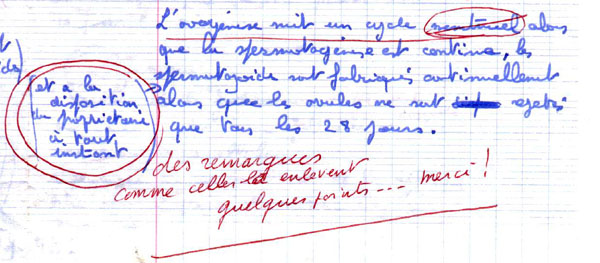 L'ovogénèse suit un cycle menstruel alors
que la spermatogénèse est continue, les
spermatozoïds sont fabriqués continuellement
alors que les ovules ne sont rejetés
que tous les 28 jours.
(et a la
disposition
du propriétaire
à tout
instant
des remarques
comme celles là enlèvent
quelques points --- merci !